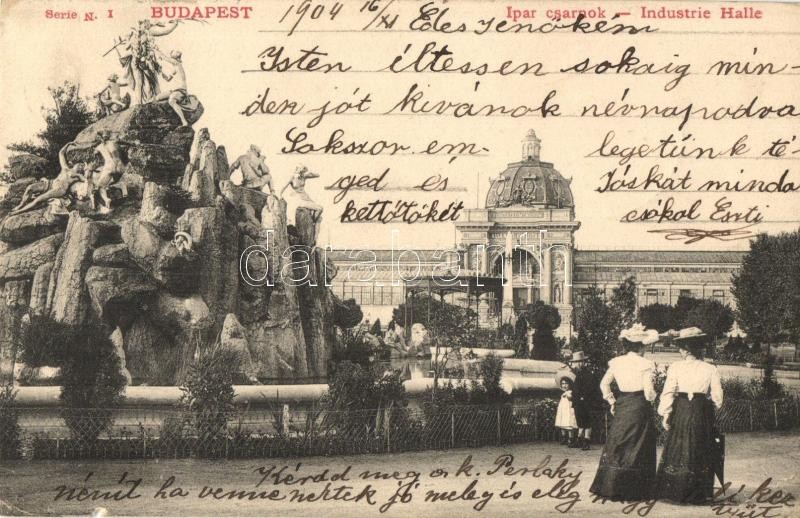 Serie N. 1 BUDAPEST Ipar csarnok — Industrie Halle
1904 16/XI Édes Jenőkém
Isten éltessen sokáig min-
den jót kívánok névnapodra
Sokszor em- legetünk té-
ged és Jóskát minda
kettőtökét csókol Eszti
databanth
Kérdd meg a k. Perlaky
nénit ha venne nektek jó meleg és elég nagy kez
tyüt